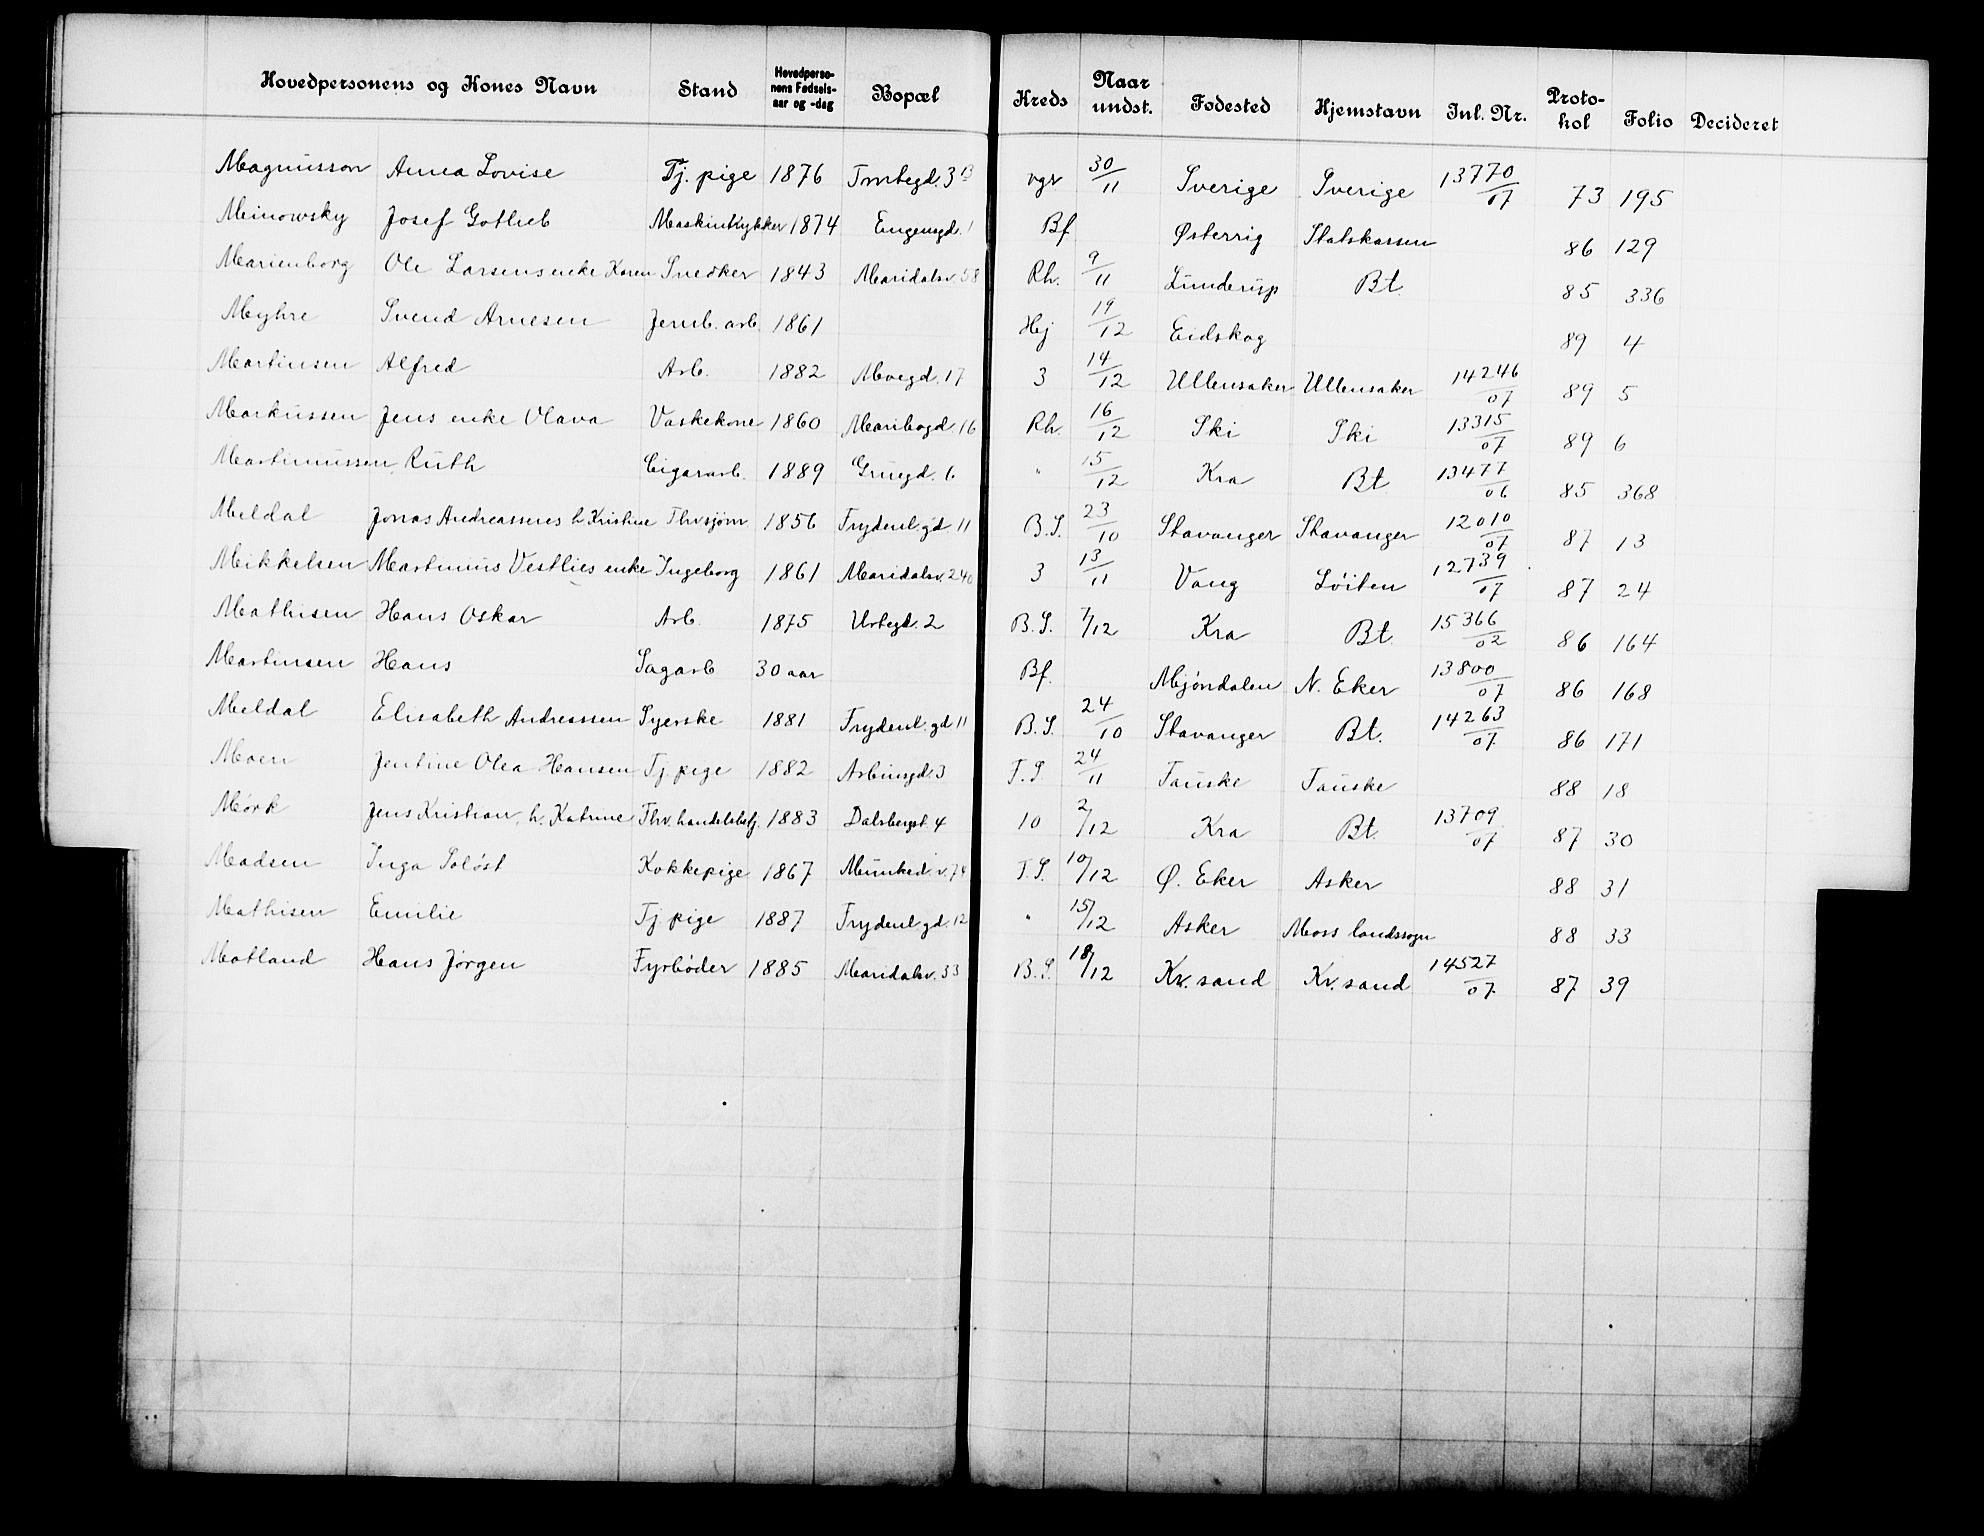 Hovedpersonens og Kones Navn Stand Hovedperso-nens Fødsels-aar og -dag Bopæl Kreds Naar undst. Fødested Hjemstavn Inl. Nr. Proto-kol Folio Decideret
Magnusson Anna Lovise Tj. pige 1876 Tomtegd. 3 B vgr 30/11 Sverige Sverige 13770/07 73 195
Minowsky Josef Gotlieb Maskintrykker 1874 Eugensgd. 1 Bf Østerrig Statskassen 86 129
Marienborg Ole Larsens enke Karen Snedker 1843 Maridalsv. 58 Rh. 9/11 Bt. 85 336
Myhre Svend Arnesen Jernb. arb. 1861 Hej 19/12 Eidskog 89 4
Martinsen Alfred Arb. 1882 Moegd. 17 3 14/12 Ullensaker Ullensaker 14246/07 89 5
Markussen Jens enke Olava Vaskekone 1860 Maribogd. 16 Rh. 16/12 Ski Ski 13315/07 89 6
Martinussen Ruth Cigararb. 1889 Gruegd. 6 " 15/12 Kra Bt. 13477/06 85 368
Meldal Jonas Andreassens h. Kristine Thv.sjøm. 1856 Frydenl.gd. 11 B.S. 23/10 Stavanger Stavanger 12010/07 87 13
Mikkelsen Martinius Vestlies enke Ingeborg 1861 Maridalsv. 240 3 13/11 Vang Løiten 12739/07 87 24
Mathisen Hans Oskar Arb. 1875 Urtegd. 2 B.S. 7/12 Kra Bt. 15366/02 86 164
Martinsen Hans Sagarb 30 aar Bf. Mjøndalen N. Eker 13800/07 86 168
Meldal Elisabeth Andreassen Syerske 1881 Frydenl. gd 11 B.S. 24/10 Stavanger Bt. 14263/07 86 171
Moen Jentine Olea Hansen Tj. pige 1882 Arbinsgd. 3 T.S. 24/11 Fauske Fauske 88 18
Mørk Jens Kristian, h. Katrine Thv. handelsbetj. 1883 Dalsbergst. 4 10 2/12 Kra Bt. 13709/07 87 30
Madsen Inga Soløst Kokkepige 1867 Munked.v. 74 T.S. 10/12 Ø. Eker Asker 88 31
Mathisen Emilie Tj pige 1887 Frydenl gd. 12 " 15/12 Asker Moss landssogn 88 33
Matland Hans Jørgen Fyrbøder 1885 Maridalsv. 33 B.S. 18/12 Kr. sand Kr. sand 14527/07 87 39